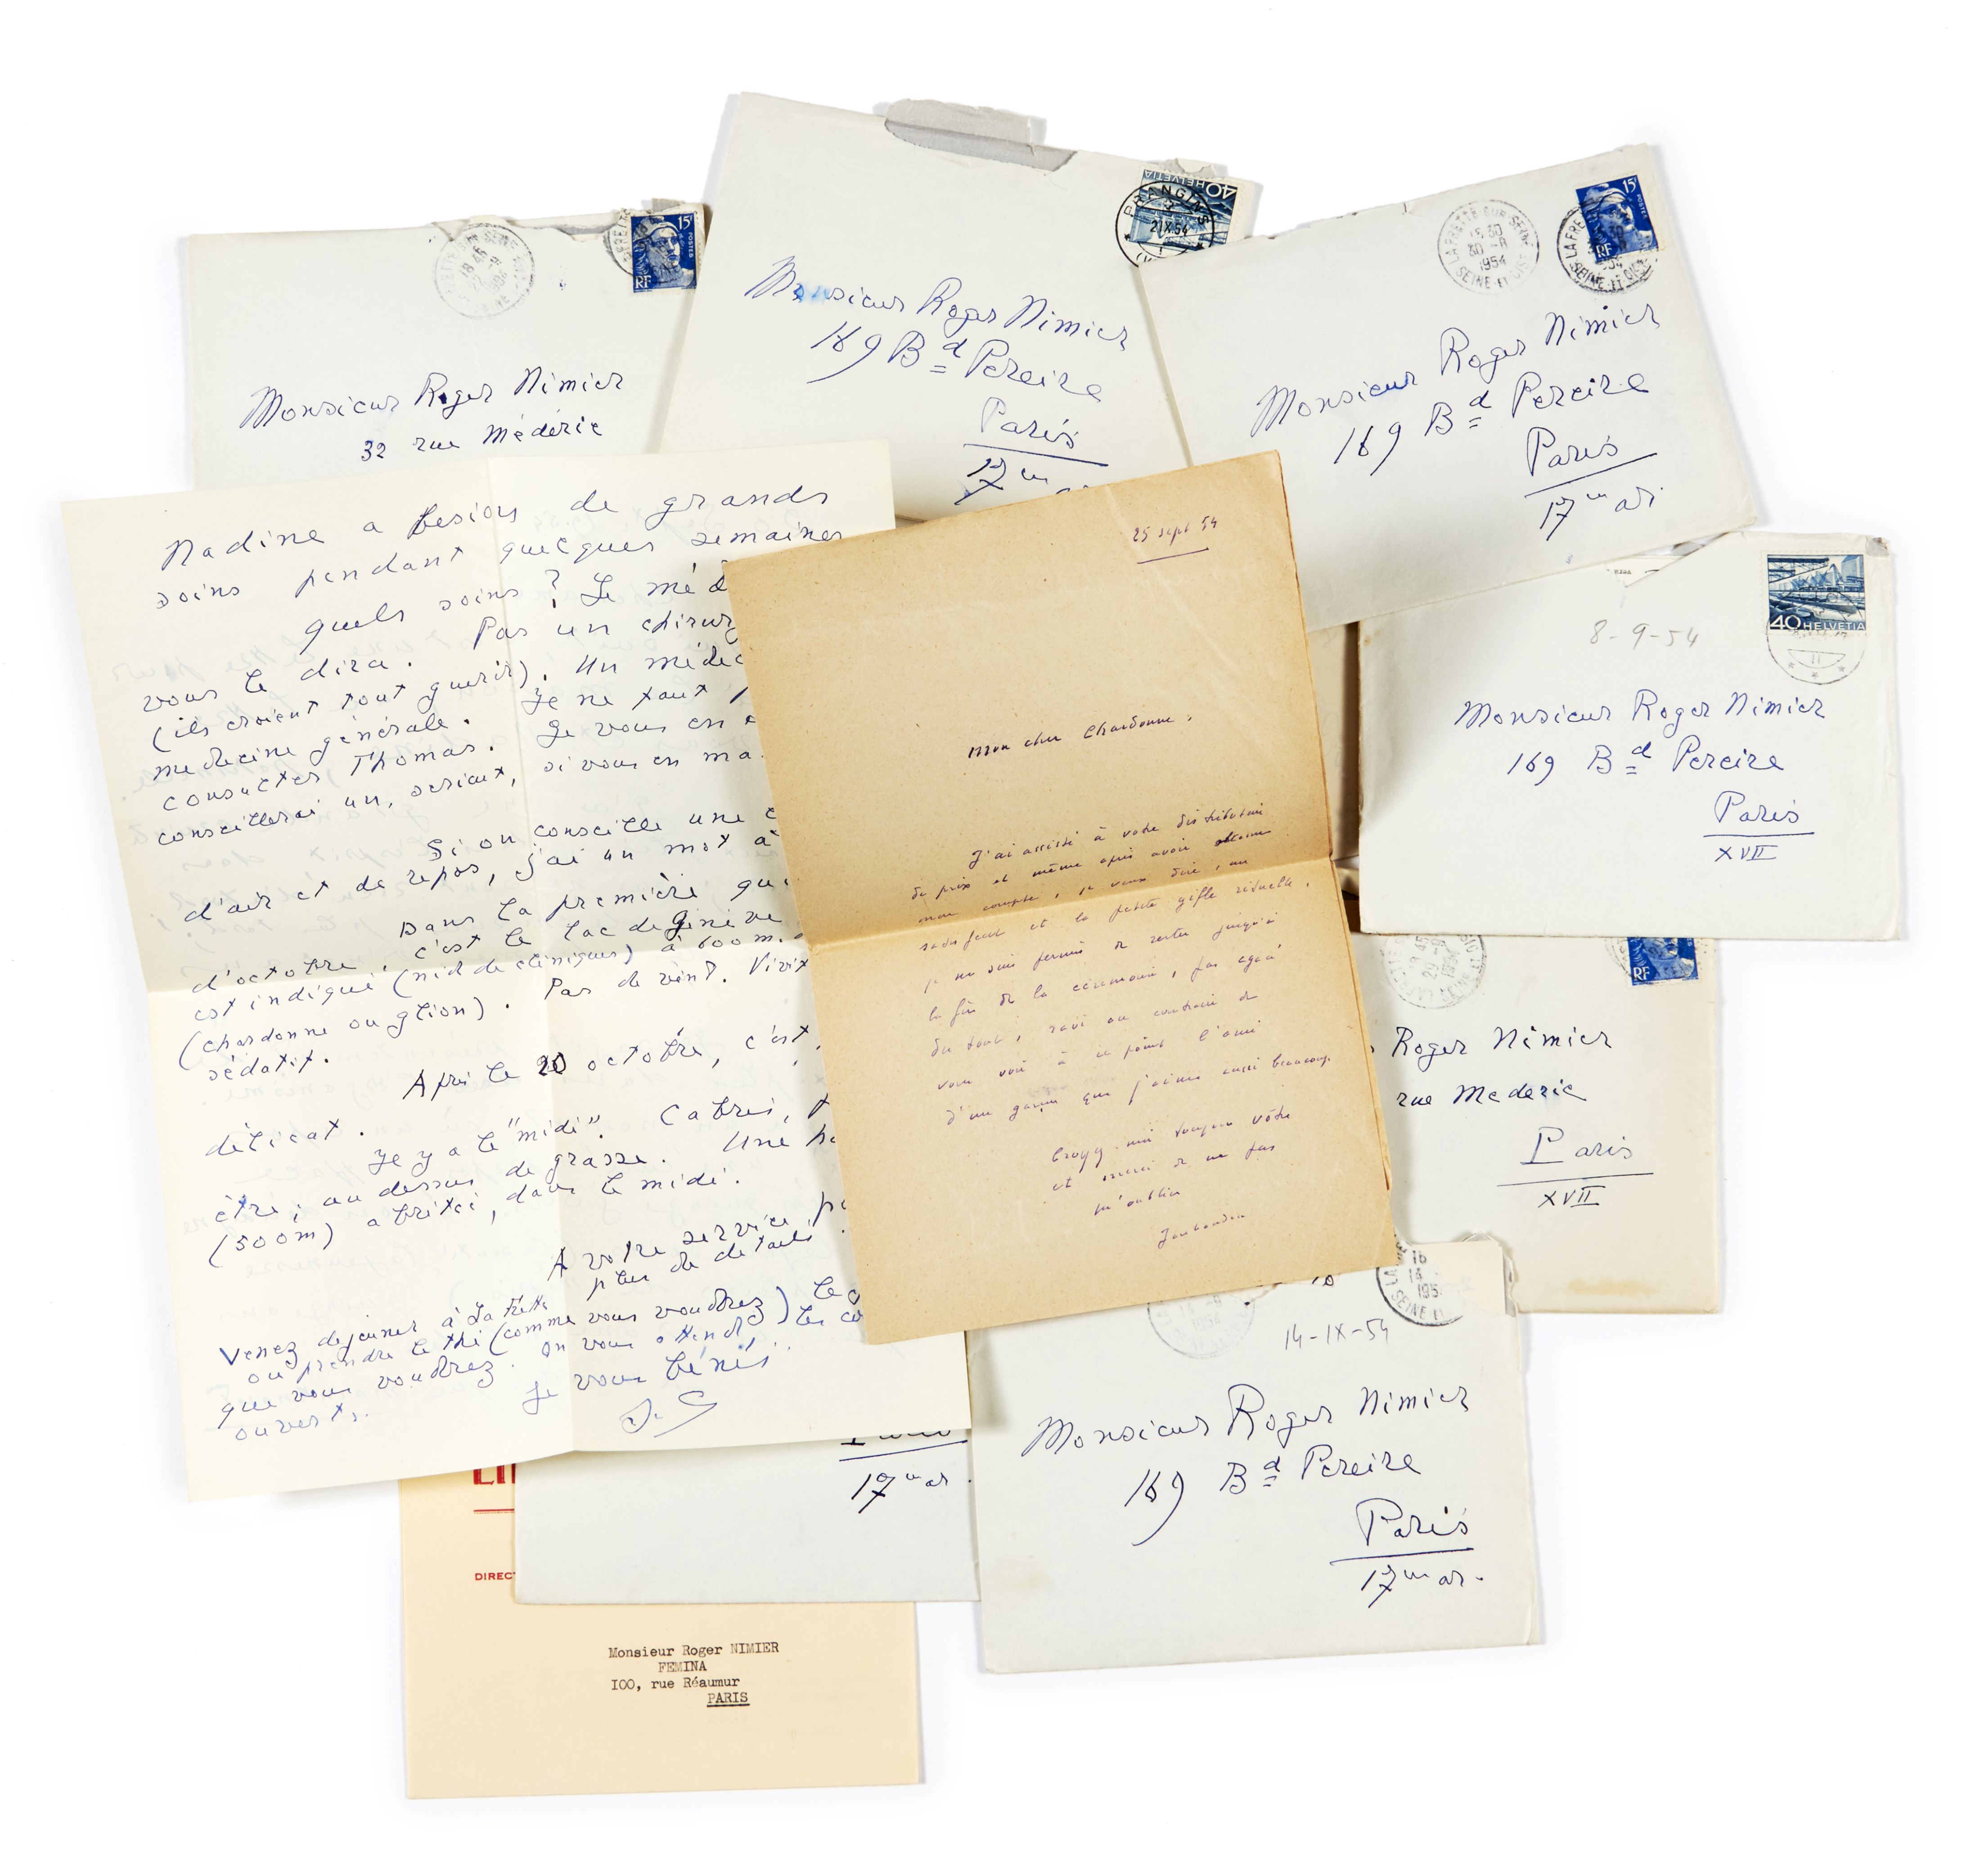 15F
POSTES
RF
Monsieur Roger Nimier
32 rue Médéric
40 HELVETIA
PRANGINS
2 IX 54
Monsieur Roger Nimier
169 Bd Pereire
Paris
17me
LA FRETTE-SUR-SEINE
15 30
30 -8
1954
SEINE-ET-OISE
15F
POSTES
RF
Monsieur Roger Nimier
169 Bd Pereire
Paris
17me arr
8-9-54
40 HELVETIA
Monsieur Roger Nimier
169 Bd Pereire
Paris
XVII
RF
Roger Nimier
rue Mederic
Paris
XVII
Nadine a besoin de grands
soins pendant quelques semaines
quels soins? Le méd
vous le dira. Pas un chirurg
(ils croient tout guérir). Un médec
medecine générale. Je ne faut
consulter Thomas. Je vous en
conseillerai un, serieux, si vous en ma
Si on conseille une c
d'air et de repos, j'ai un mot à
Dans la première qui
d'octobre, c'est le lac de Genève
est indiqué (nid de cliniques) à 600 m.
(chardonne ou glion). Pas de vent.
sédatif.
Après le 20 octobre, c'est
délicat.
Je y a le "midi". Cabris,
être; au dessus de grasse. Une
(500m) abritée, dans le midi.
A votre service
plus de details
Venez dejeuner à La Frette
ou prendre le thé (comme vous voudrez)
que vous voudrez. on vous attend,
ouverts.
Je vous bénis.
25 sept 54
Mon cher Chardonne,
J'ai assisté à votre distribution
de prix et même après avoir
mon compte, je veux dire, un
et la petite gifle rituelle,
je me suis permis de rester jusqu'à
la fin de la cérémonie, pas
du tout, ravi au contraire de
vous voir à ce point l'ami
d'un garçon que j'aime aussi beaucoup.
Croyez-moi toujours vôtre
et merci de ne pas
m'oublier
Jouhandeau
14-IX-54
Monsieur Roger Nimier
169 Bd Pereire
Paris
17me ar.
17me ar.
DIRECT
Monsieur Roger NIMIER
FEMINA
I00, rue Réaumur
PARIS